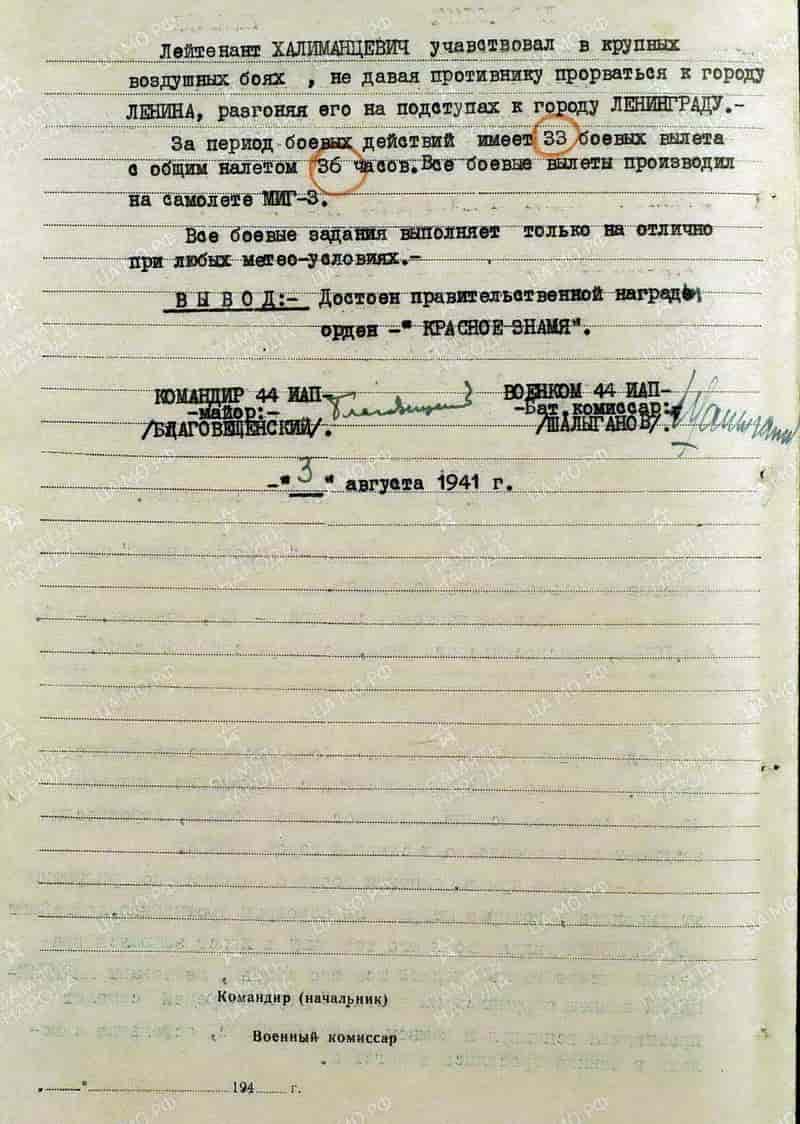 Лейтенант ХАЛИМАНЦЕВИЧ учавствовал в крупных
воздушных боях , не давая противнику прорваться к городу
ЛЕНИНА, разгоняя его на подступах к городу ЛЕНИНГРАДУ.-
За период боевых действий имеет 33 боевых вылета
с общим налетом 36 часов.Все боевые вылеты производил
на самолете МИГ-3.
Все боевые задания выполняет только на отлично
при любых метео-условиях.-
В Ы В О Д:- Достоен правительственной награды
орден -" КРАСНОЕ ЗНАМЯ".
КОМАНДИР 44 ИАП- ВОЕНКОМ 44 ИАП-
-майор:- -Бат.комиссар:-
/БЛАГОВЕЩЕНСКИЙ/. /ШАЛЫГАНОВ/.
-"3" августа 1941 г.
Командир (начальник)
Военный комиссар
„ " 194 г.